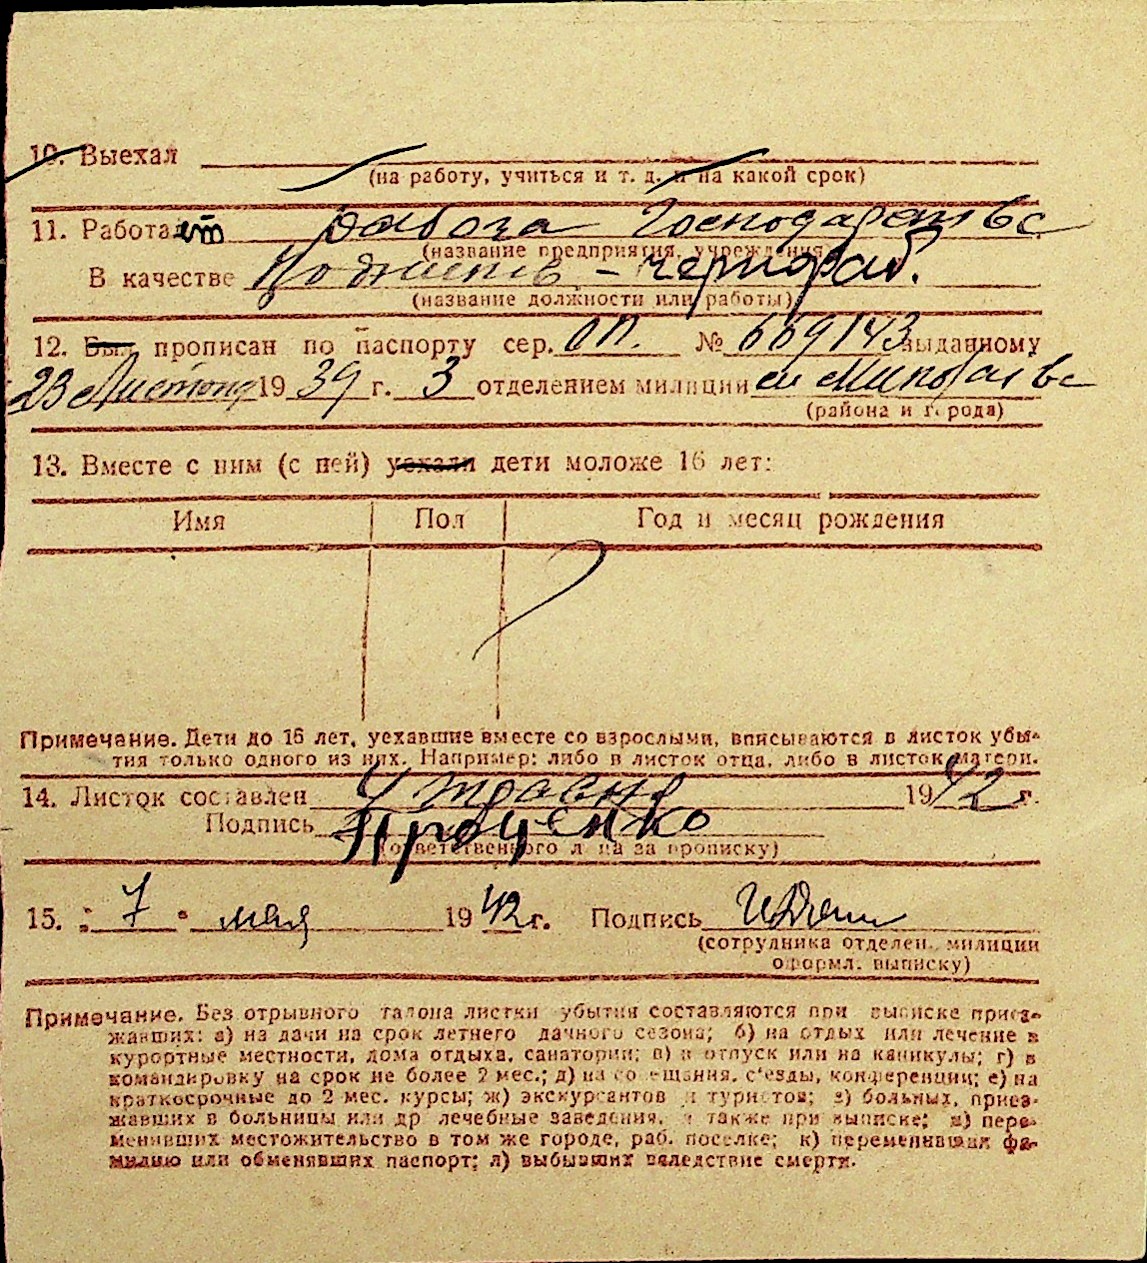 10. Выехал
(на работу, учиться и т. д. и на какой срок)
11. Работает
(название предприятия, учреждения)
В качестве чернораб.
(название должности или работы)
12. Был прописан по паспорту сер. ОП. № 669143 выданному
23 1939 г. 3 отделением милиции
(района и города)
13. Вместе с ним (с ней) уехали дети моложе 16 лет:
Имя Пол Год и месяц рождения
Примечание. Дети до 16 лет, уехавшие вместе со взрослыми, вписываются в листок убы-
тия только одного из них. Например: либо в листок отца, либо в листок матери.
14. Листок составлен 4 травня 1942 г.
Подпись Проценко
(ответственного лица за прописку)
15. " 7 " мая 1942 г. Подпись
(сотрудника отделен. милиции
оформл. выписку)
Примечание. Без отрывного талона листки убытия составляются при выписке приез-
жавших: а) на дачи на срок летнего дачного сезона; б) на отдых или лечение в
курортные местности, дома отдыха, санатории; в) в отпуск или на каникулы; г) в
командировку на срок не более 2 мес.; д) на совещания, с'езды, конференции; е) на
краткосрочные до 2 мес. курсы; ж) экскурсантов и туристов; з) больных, приез-
жавших в больницы или др лечебные заведения, а также при выписке; и) пере-
менивших местожительство в том же городе, раб. поселке; к) переменивших фа-
милию или обменявших паспорт; л) выбывших вследствие смерти.